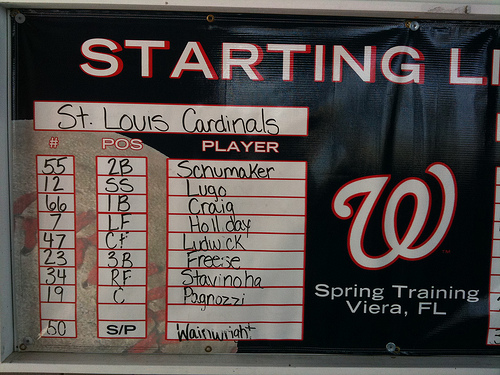 STARTING LI
St. Louis Cardinals
# POS PLAYER
55 2B Schumaker
12 SS Lugo
66 1B Craig
7 LF Holliday
47 CF Ludwick
23 3B Freese
34 RF Stavinoha
19 C Pagnozzi
50 S/P Wainwright
W
Spring Training
Viera, FL